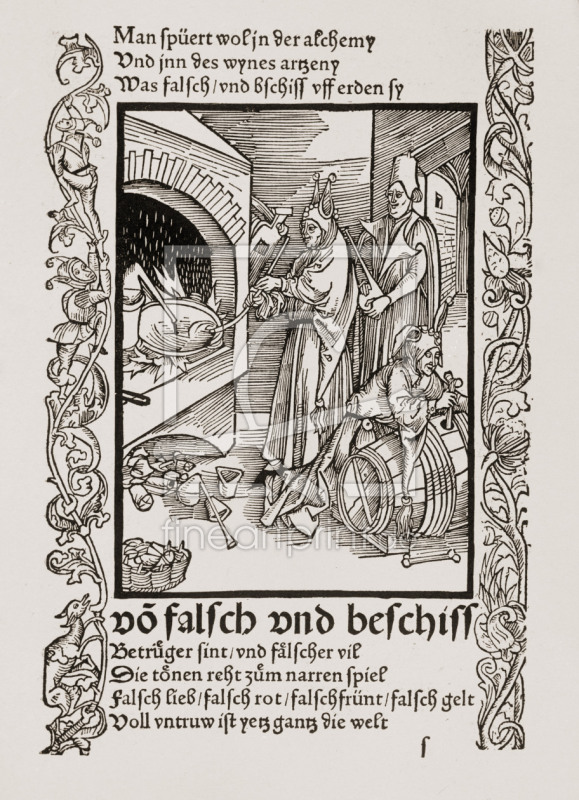 Man spüert wol jn der alchemy
Vnd jnn des wynes artzeny
Was falsch / vnd bschiss vff erden sy
fineartprint
võ falsch vnd beschiss
Betrüger sint / vnd fälscher vil
Die tönen reht zům narren spiel
Falsch lieb / falsch rot / falsch fründt / falsch gelt
Voll vntruw ist yetz gantz die welt
s